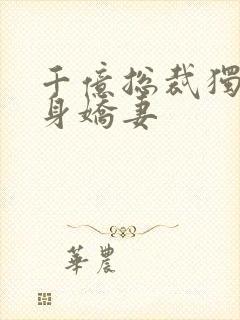 千億総裁獨
身嬌妻
華農